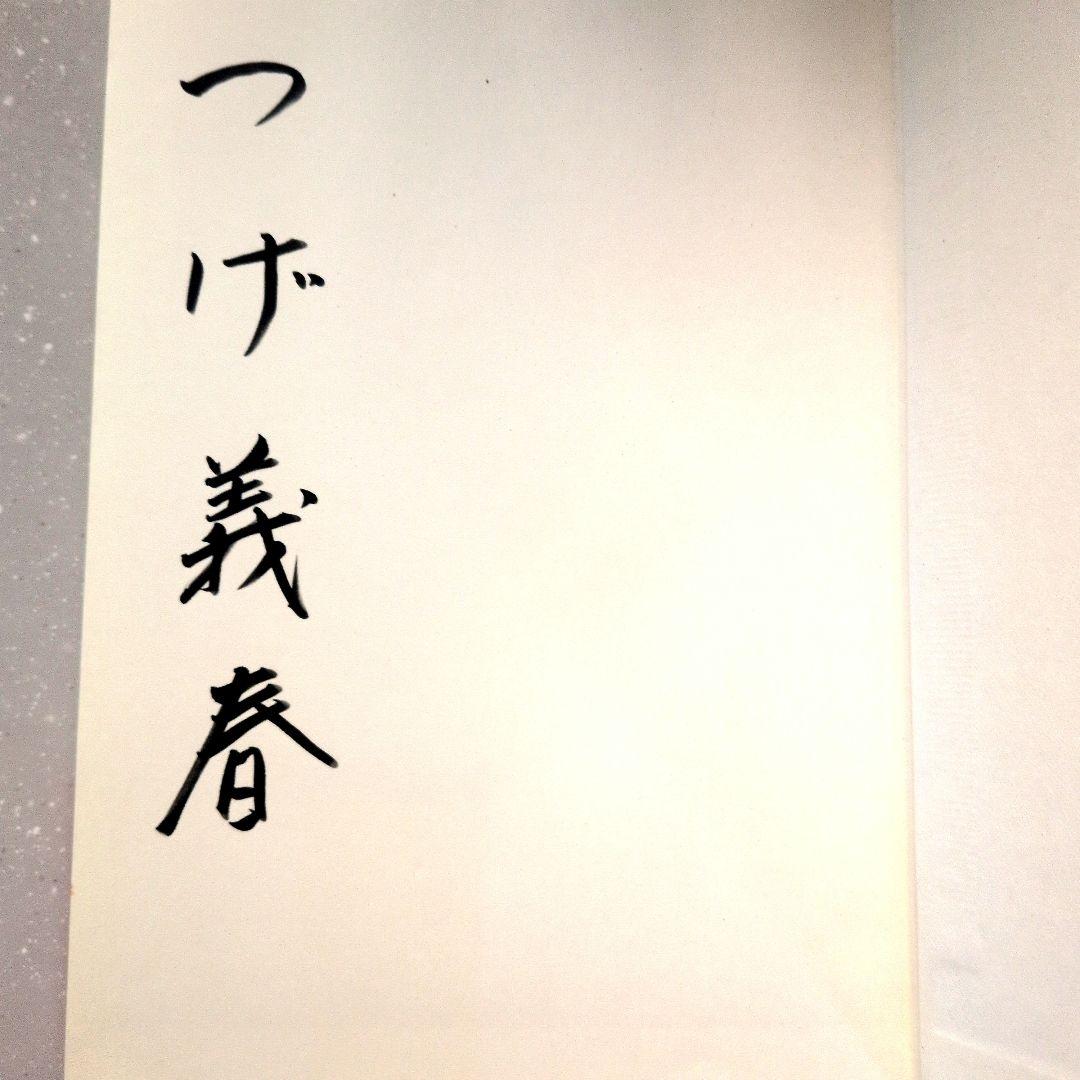 つげ義春